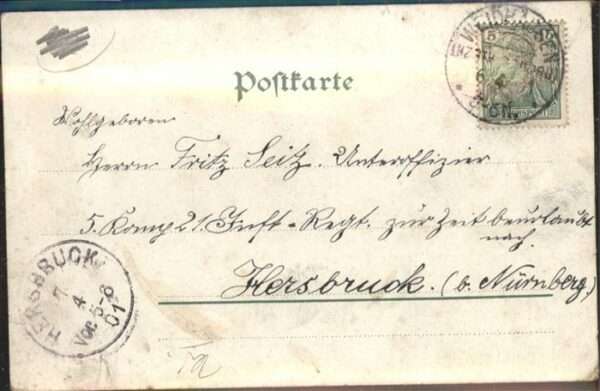 Postkarte
5
6 4
Wohlgeboren
Herrn Fritz Seitz. Unteroffizier
5. Komp 21. Inft-Regt. zur Zeit beurlaubt
nach.
Hersbruck. (b. Nürnberg.)
HERSBRUCK
7
4
Vor. 5-6
01